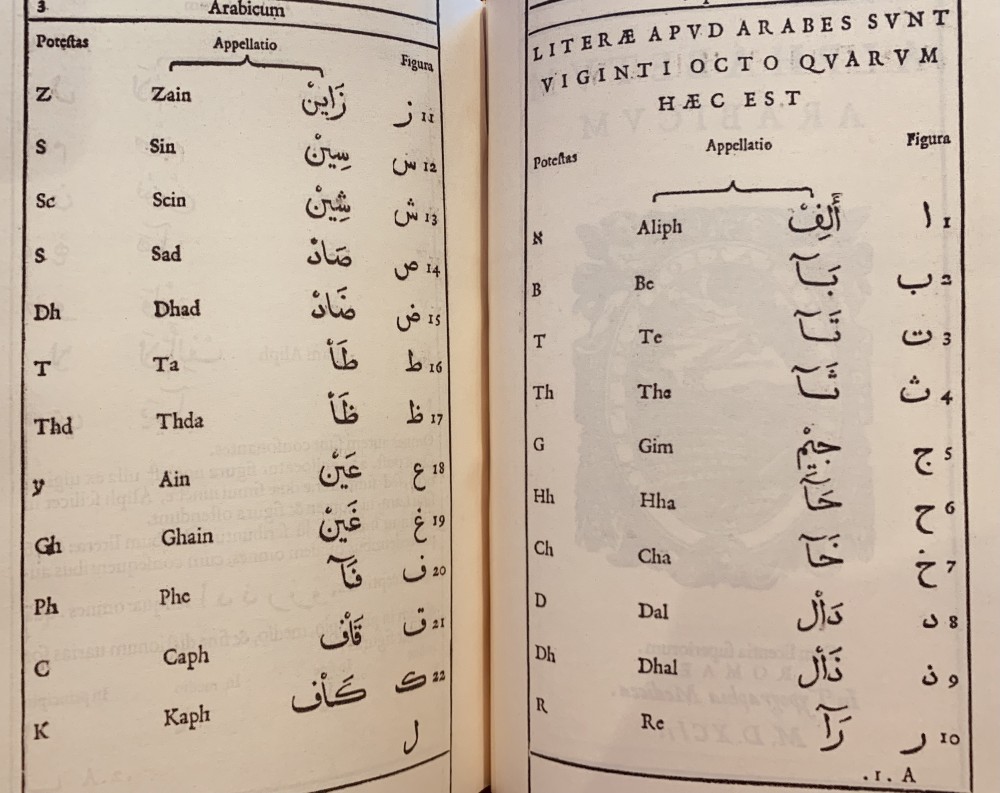 LITERÆ APVD ARABES SVNT
VIGINTI OCTO QVARVM
HÆC EST
Poteſtas Appellatio Figura
א Aliph أَلِفْ ا 1
B Be بَآ ب 2
T Te تَآ ت 3
Th The ثَآ ث 4
G Gim جِيْمْ ج 5
Hh Hha حَآ ح 6
Ch Cha خَآ خ 7
D Dal دَاْل د 8
Dh Dhal ذَاْل ذ 9
R Re رَآ ر 10
.1. A
3 Arabicum
Poteſtas Appellatio Figura
Z Zain زَاينْ ز 11
S Sin سِينْ س 12
Sc Scin شِينْ ش 13
S Sad صَادْ ص 14
Dh Dhad ضَادْ ض 15
T Ta طَأ ط 16
Thd Thda ظَأ ظ 17
y Ain عَينْ ع 18
Gh Ghain غَينْ غ 19
Ph Phe فَآ ف 20
C Caph قَاْف ق 21
K Kaph كَاْف ك 22
ل